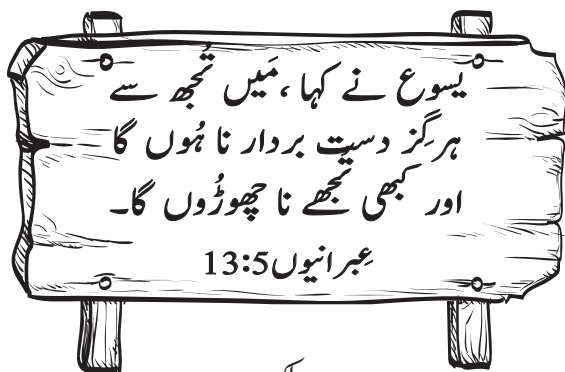 یسوع نے کہا ،مَیں تُجھ سے
ہرگِز دست بردار نا ہُوں گا
اور کبھی تُجھے نا چھوڑُوں گا۔
عِبرانیوں13:5